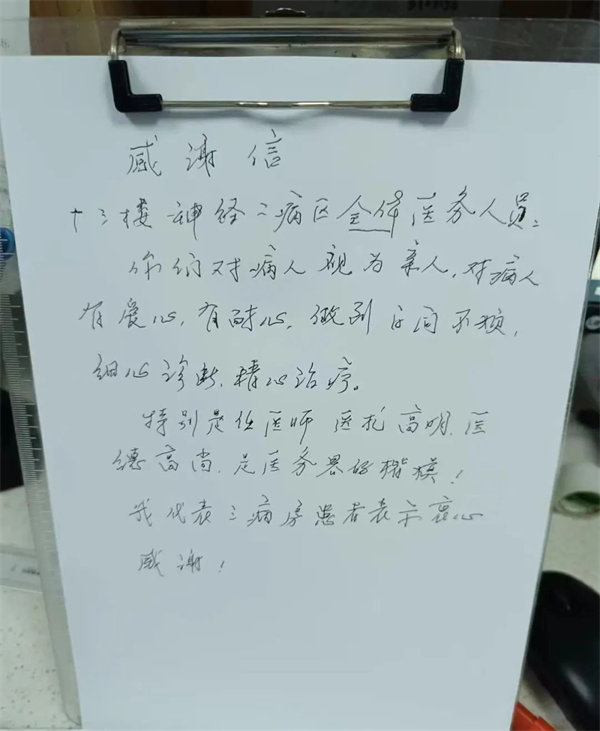 感谢信
十三楼神经二病区全体医务人员：
你们对病人视为亲人，对病人
有爱心，有耐心，做到百问不烦，
细心诊断，精心治疗。
特别是任医师医术高明，医
德高尚，是医务界的楷模！
我代表三病房患者表示衷心
感谢！